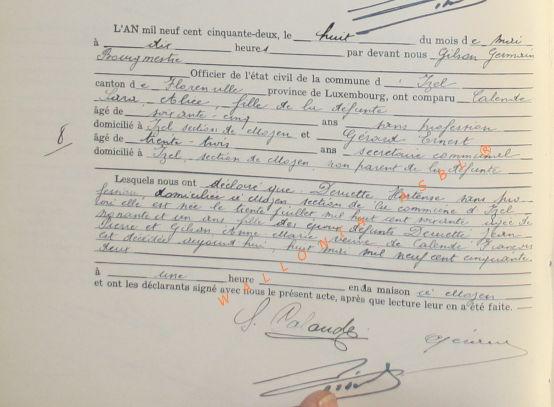 L'AN mil neuf cent cinquante-deux, le huit du mois de mai
à dix heures par devant nous Gilson Germain
Bourgmestre
Officier de l'état civil de la commune d'Izel
canton de Florenville province de Luxembourg, ont comparu Calande
Sara, Alice, fille de la défunte
âgé de soixante-cinq ans sans profession
domicilié à Izel section de Moyen et Gérard Ernest
8
âgé de trente-trois ans secrétaire communal
domicilié à Izel, section de Moyen, non parent de la défunte
Lesquels nous ont déclaré que Hortense sans pro-
fession, domiciliée à Moyen, section de la commune d'Izel
née le trente juillet mil huit cent soixante âgée de
nonante et un ans fille des époux défunts Jean-
Pierre et Gilson Anne Marie veuve de Calande François
est décédée aujourd'hui, huit mai mil neuf cent cinquante-
deux
à une heure en da maison à Moyen
et ont les déclarants signé avec nous le présent acte, après que lecture leur en a été faite.
WALLONIA
S. Calande